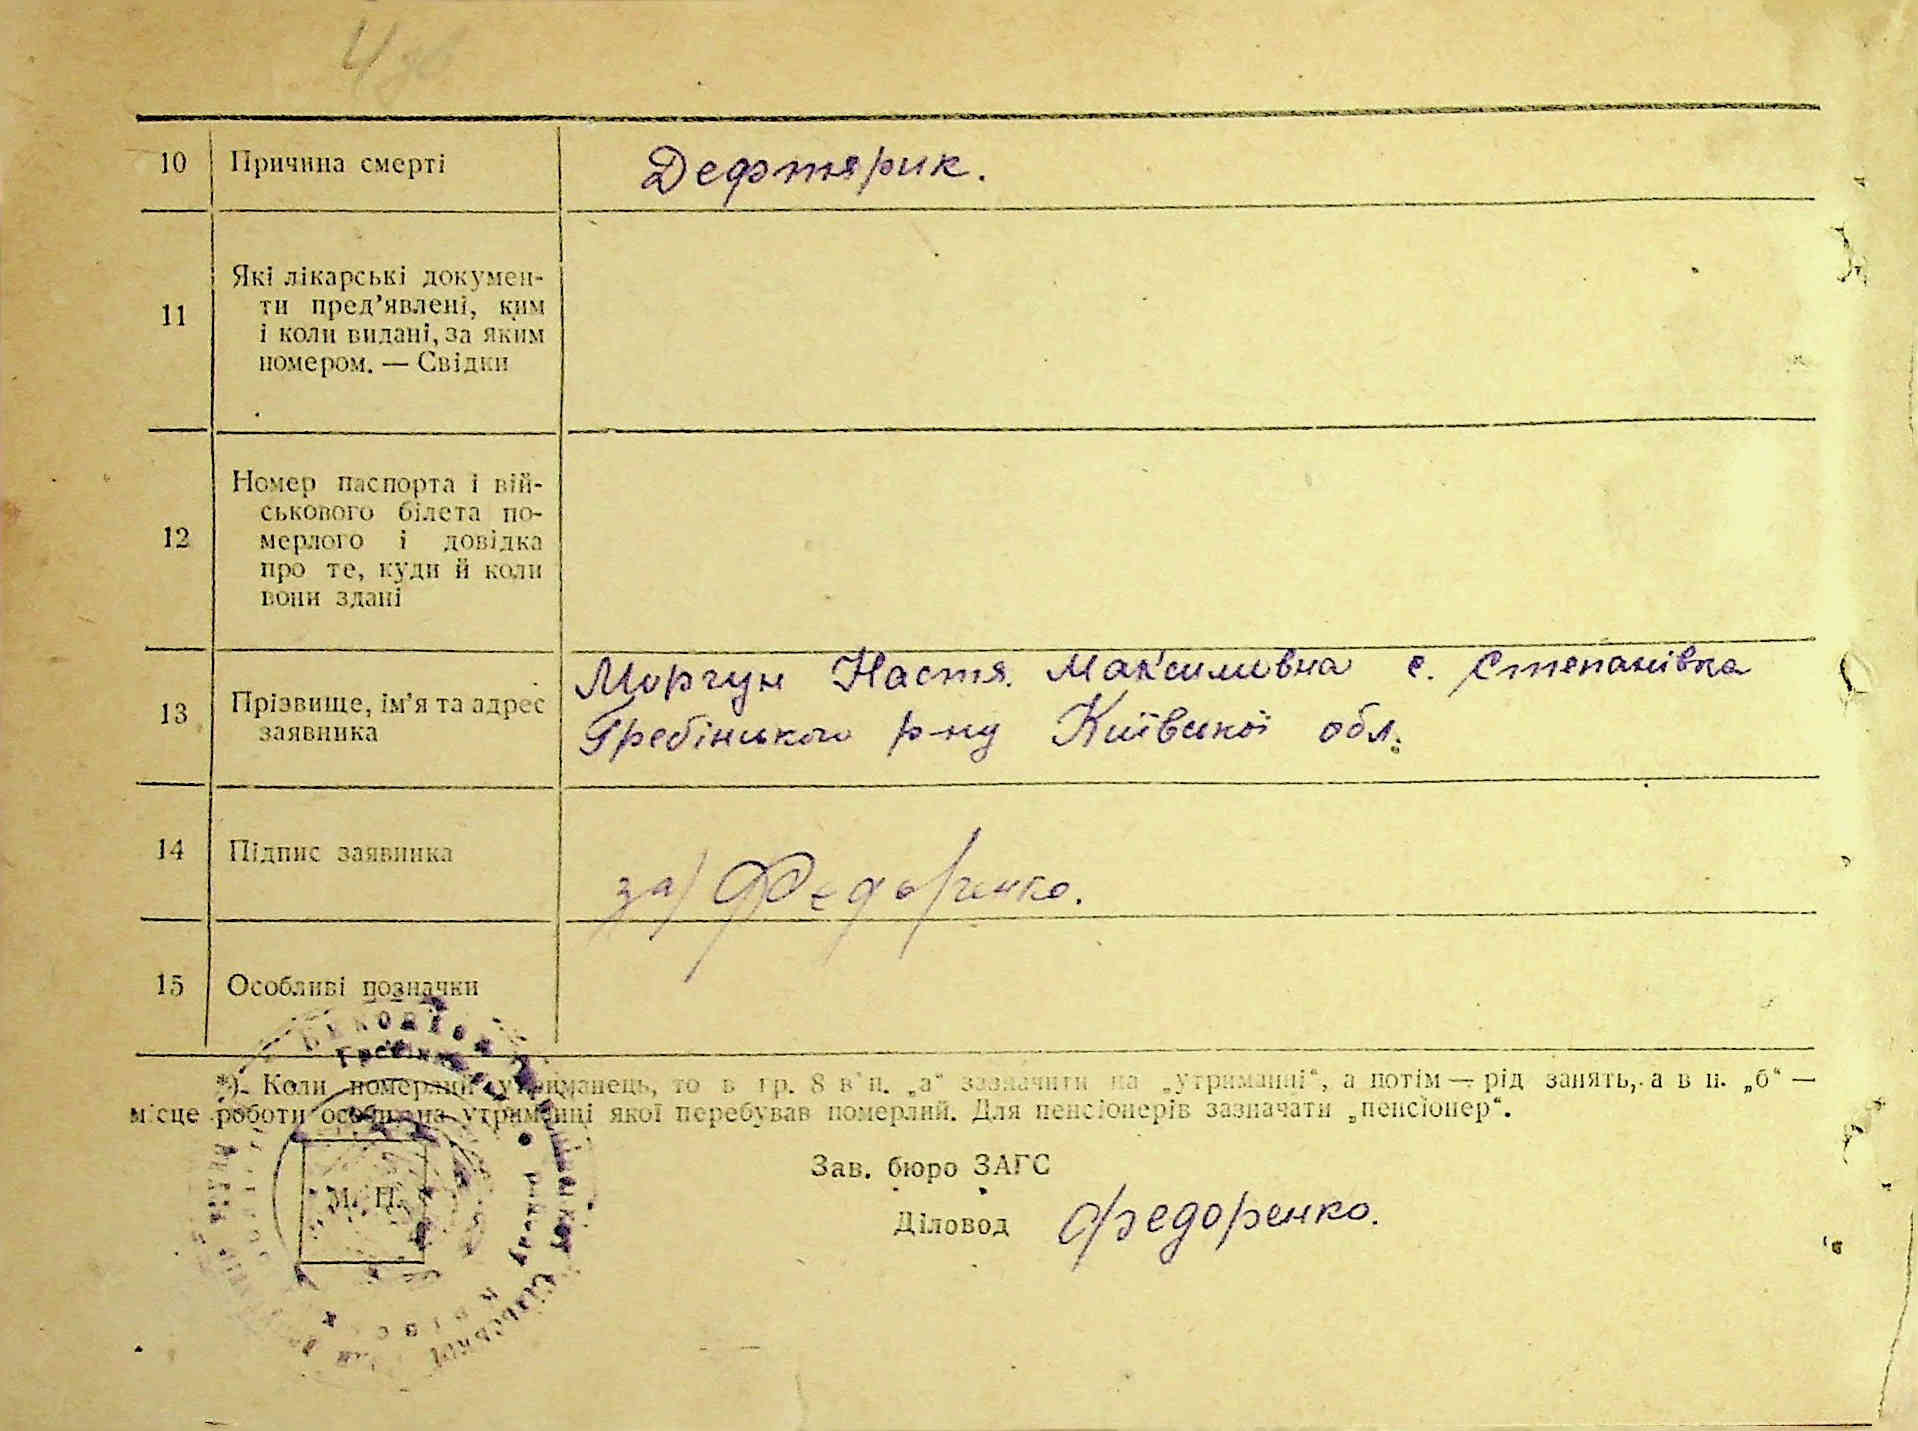 4 зв
10 Причина смерті Дефтярик.
11 Які лікарські докумен-
ти пред'явлені, ким
і коли видані, за яким
номером. — Свідки
12 Номер паспорта і вій-
ськового білета по-
мерлого і довідка
про те, куди й коли
вони здані
13 Прізвище, ім'я та адрес
заявника
Моргун Настя Максимовна с. Степанівка
Гребінського р-ну Київської обл.
14 Підпис заявника за/ Федоренко.
15 Особливі позначки
*) Коли померлий утриманець, то в гр. 8 в п. „а“ зазначити на „утриманні“, а потім — рід занять, а в п. „б“ —
місце роботи особи на утриманні якої перебував померлий. Для пенсіонерів зазначати „пенсіонер“.
М. П.
Зав. бюро ЗАГС
Діловод Федоренко.